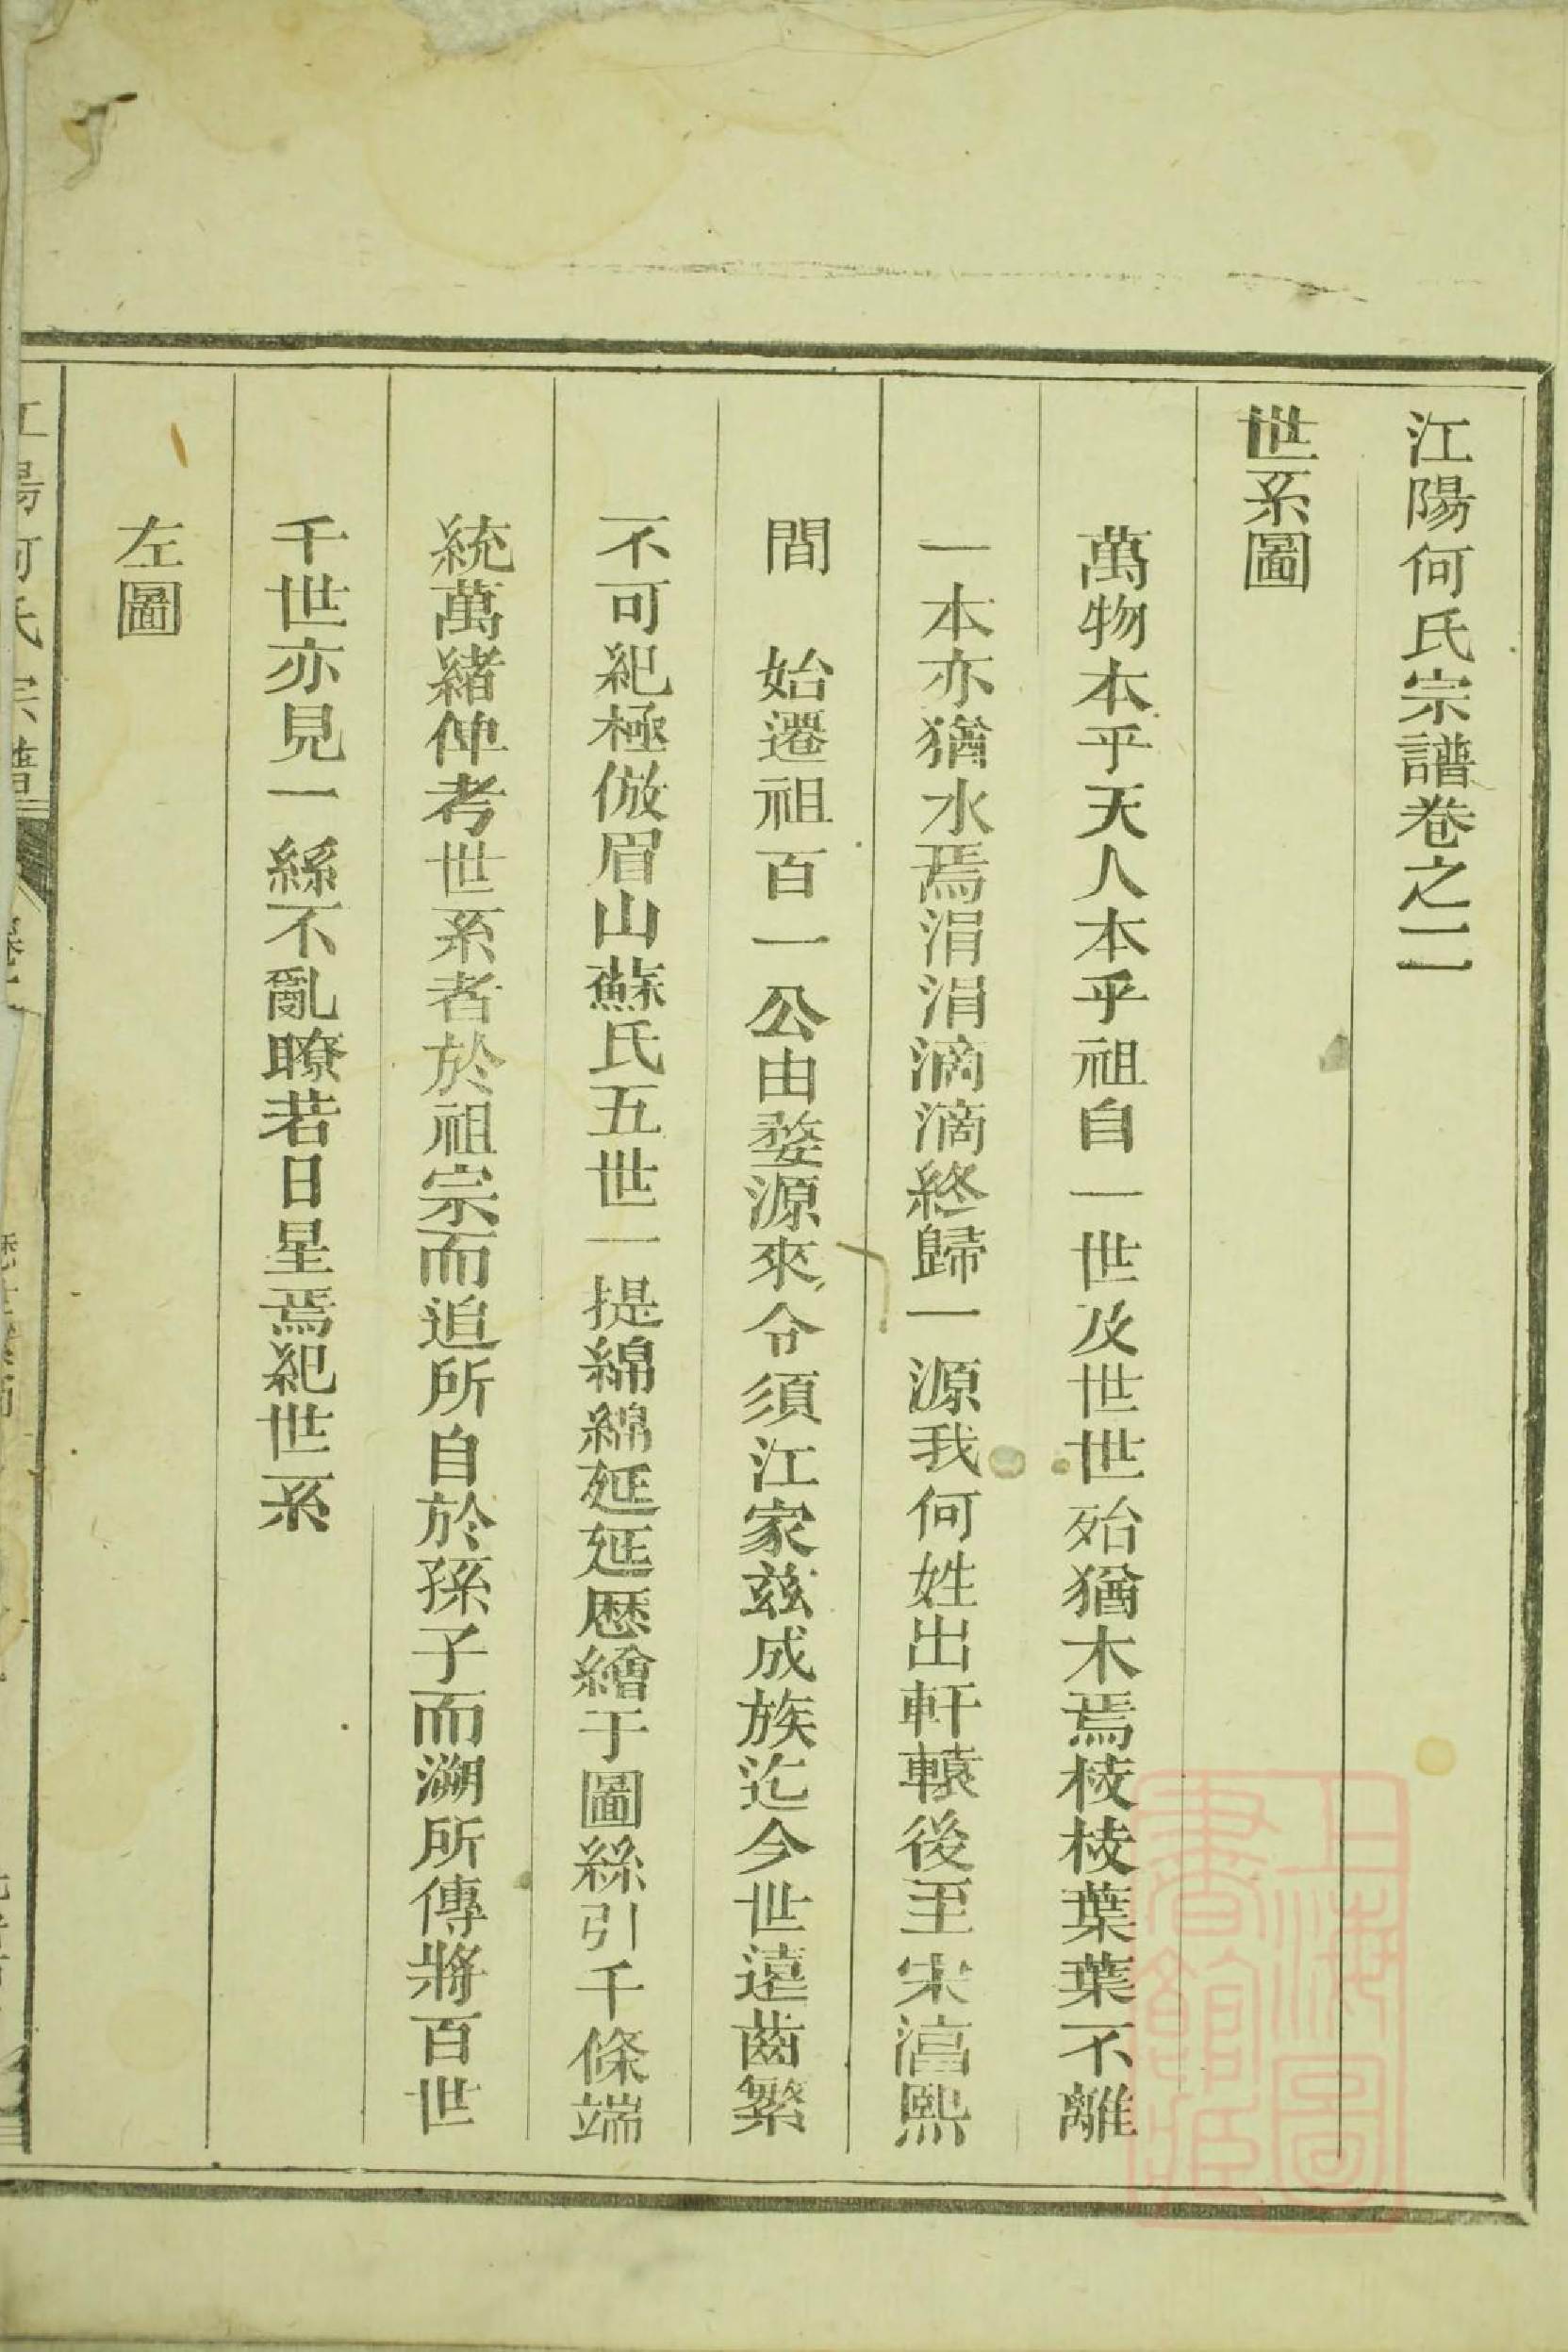 江陽何氏宗譜卷之二
世系圖
萬物本乎天人本乎祖自一世及世世殆猶木焉枝枝葉葉不離
一本亦猶水焉涓涓滴滴終歸一源我何姓出軒轅後至宋淳熙
間　始遷祖百一公由婺源來令須江家兹成族迄今世遠齒繁
不可紀極倣眉山蘇氏五世一提綿綿延延歷繪于圖絲引千條端
統萬緒俾考世系者於祖宗而追所自於孫子而溯所傳將百世
千世亦見一絲不亂瞭若日星焉紀世系
左圖
江陽何氏宗譜
上海圖書館藏